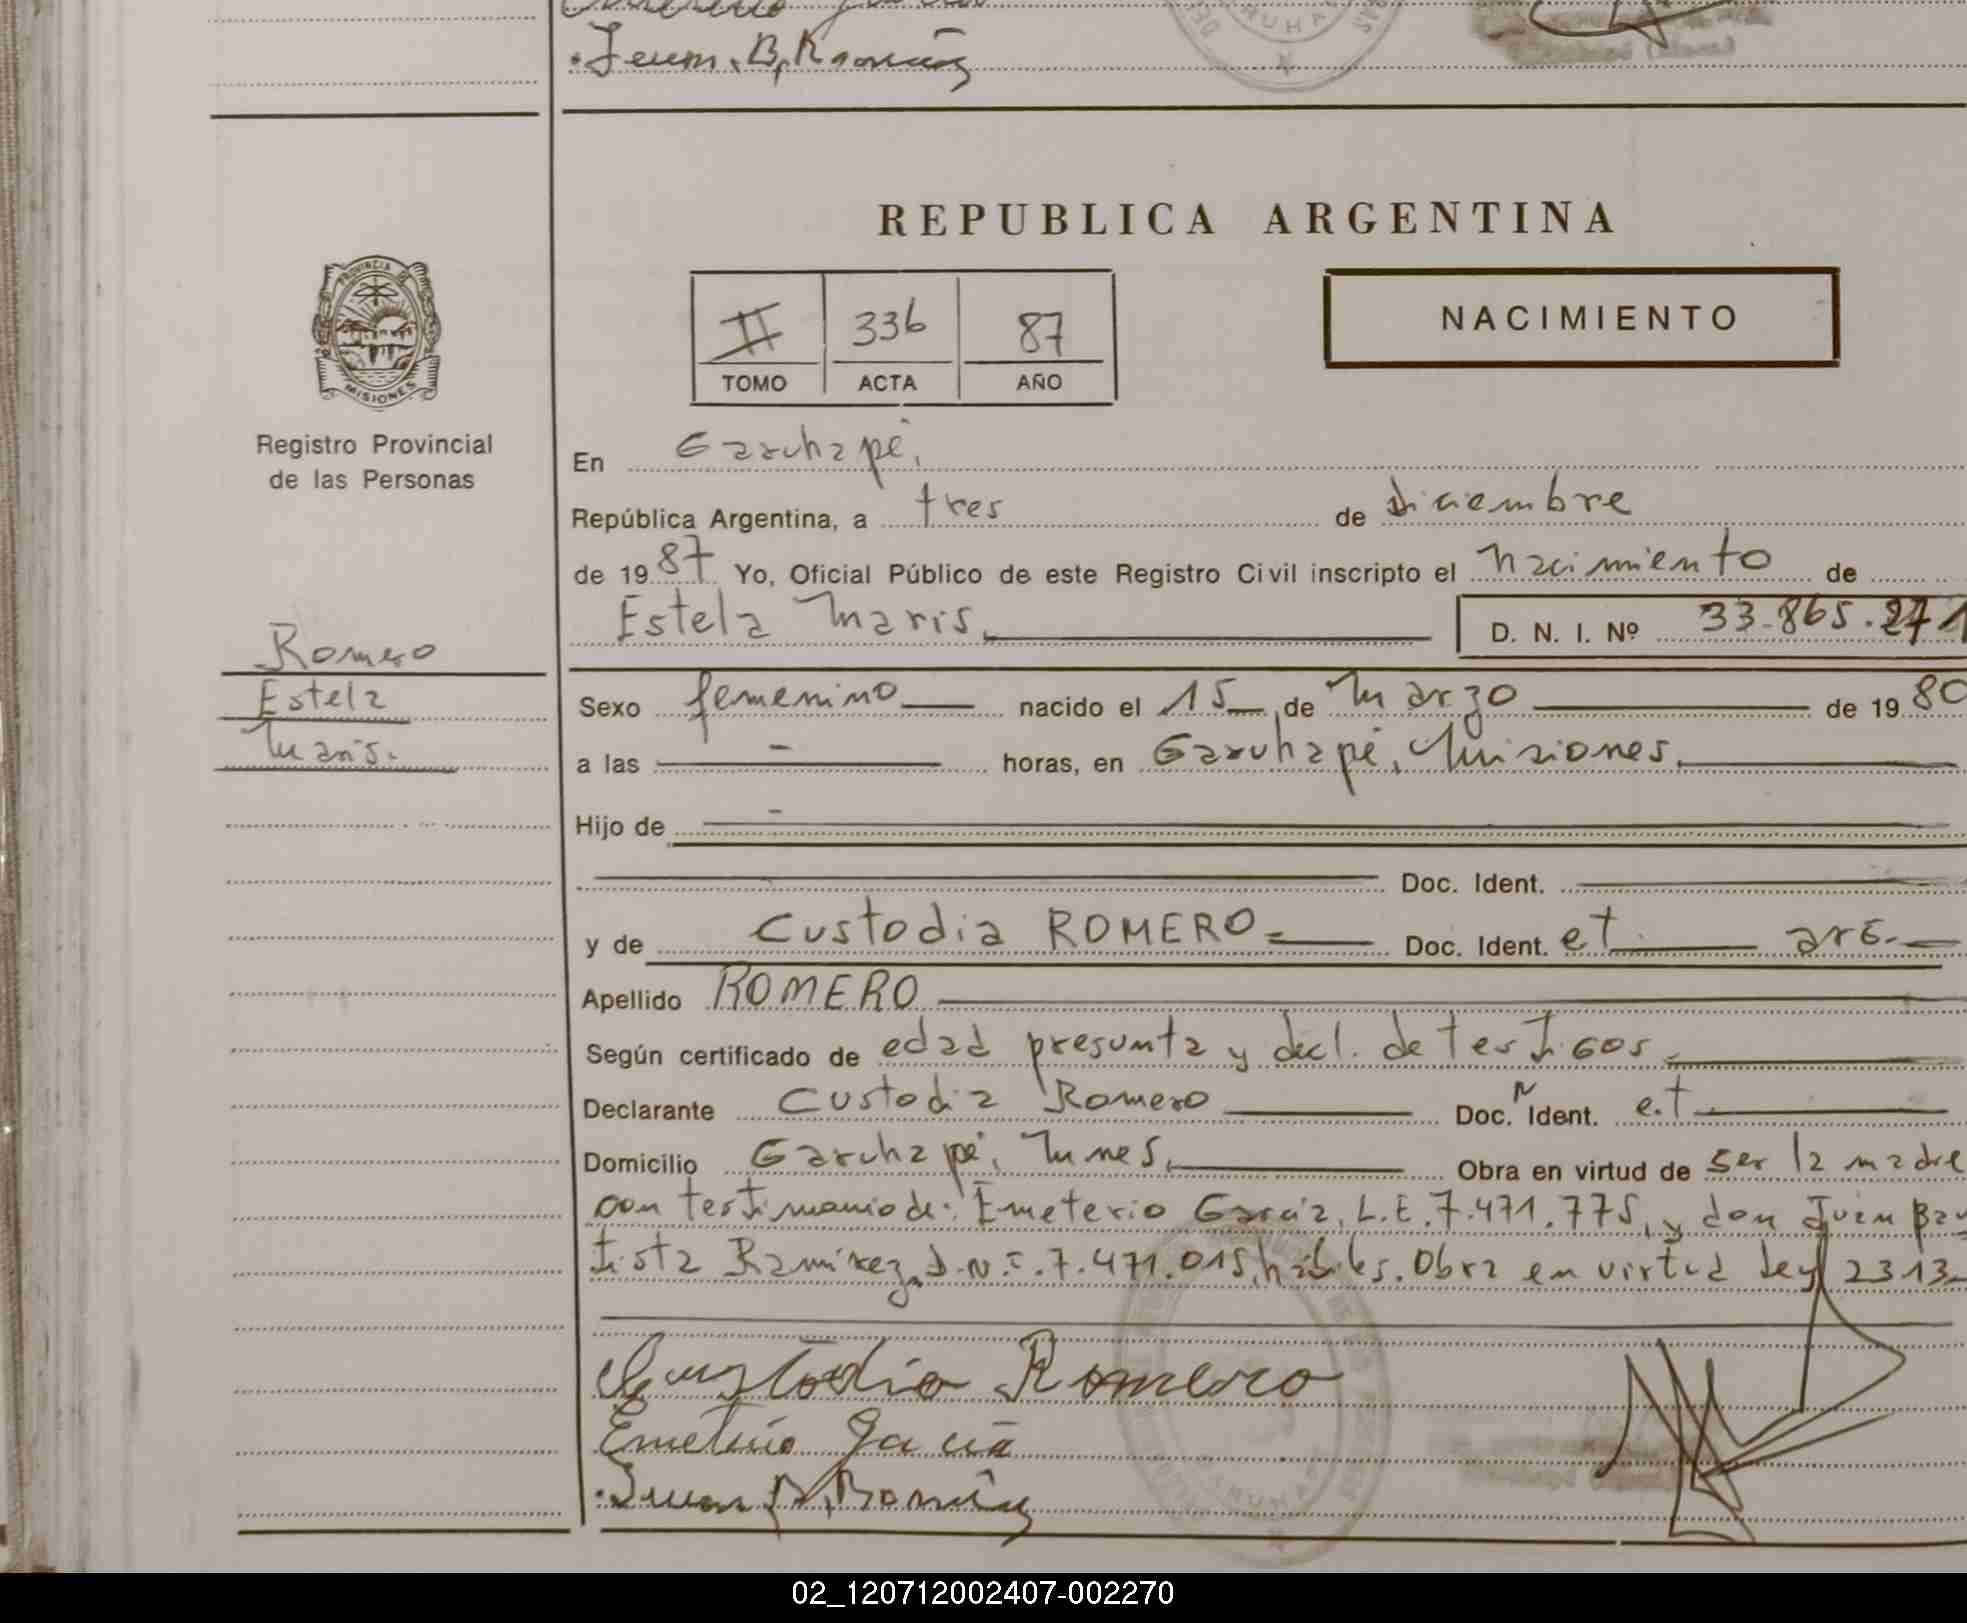 Juan B. Ramírez
REPUBLICA ARGENTINA
II 336 87
TOMO ACTA AÑO
NACIMIENTO
PROVINCIA DE
MISIONES
Registro Provincial
de las Personas
En Garuhapé,
República Argentina, a tres de diciembre
de 1987 Yo, Oficial Público de este Registro Civil inscripto el nacimiento de
Estela Maris, D. N. I. Nº 33.865.271
Romero
Estela
Maris.
Sexo femenino nacido el 15 de Marzo de 1980
a las - horas, en Garuhapé, Misiones,
Hijo de -
Doc. Ident.
y de Custodia ROMERO Doc. Ident. e.t. arg.
Apellido ROMERO
Según certificado de edad presunta y decl. de testigos.
Declarante Custodia Romero Doc. Ident. e.t.
Domicilio Garuhapé, Mnes, Obra en virtud de ser la madre
con testimonio de: Emeterio García, L.E. 7.471.775, y don Juan Bau
tista Ramírez, D.N.I. 7.471.015, hábiles. Obra en virtud Ley 2313
Custodia Romero
Emeterio García
Juan B. Ramírez
02_120712002407-002270